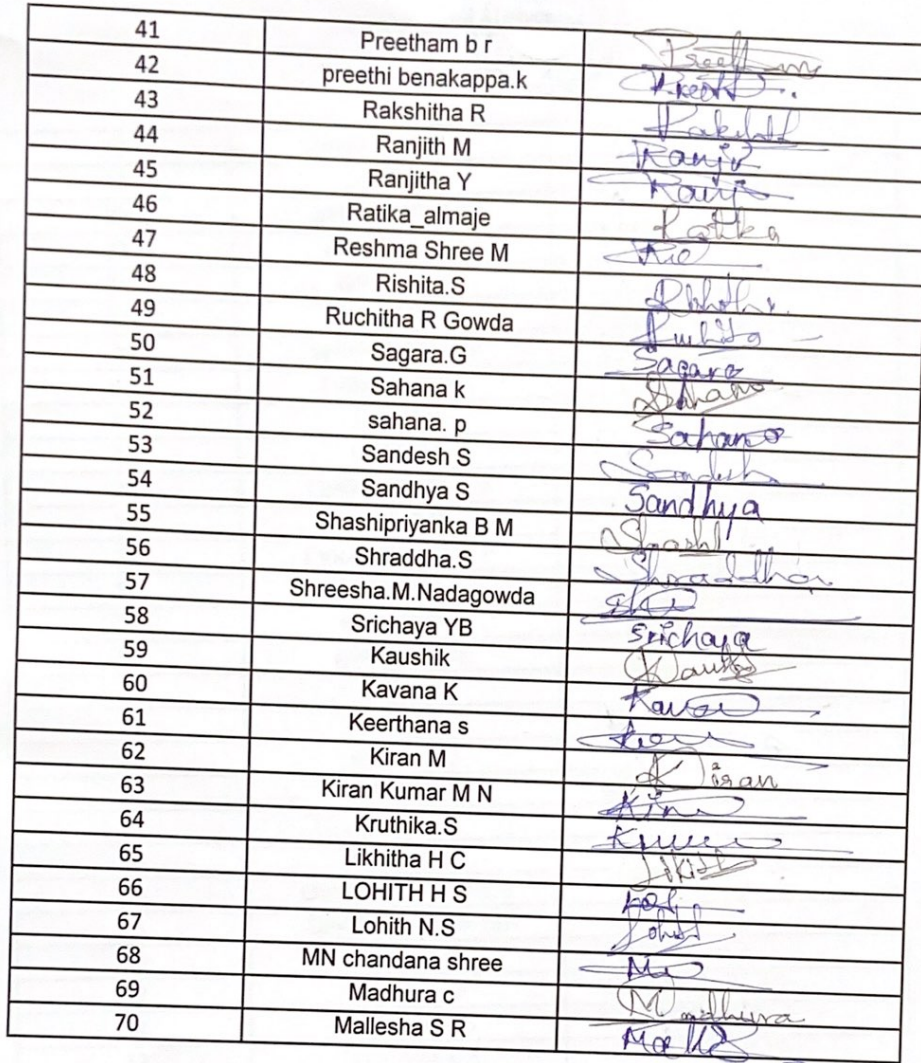 41 Preetham b r Preetham
42 preethi benakappa.k Preethi
43 Rakshitha R
44 Ranjith M
45 Ranjitha Y
46 Ratika_almaje Ratika
47 Reshma Shree M
48 Rishita.S
49 Ruchitha R Gowda Ruchita
50 Sagara.G Sagara
51 Sahana k Sahana
52 sahana. p Sahana
53 Sandesh S Sandesh
54 Sandhya S Sandhya
55 Shashipriyanka B M Shashi
56 Shraddha.S Shraddha
57 Shreesha.M.Nadagowda
58 Srichaya YB Srichaya
59 Kaushik
60 Kavana K
61 Keerthana s
62 Kiran M Kiran
63 Kiran Kumar M N
64 Kruthika.S
65 Likhitha H C
66 LOHITH H S
67 Lohith N.S
68 MN chandana shree
69 Madhura c Madhura
70 Mallesha S R